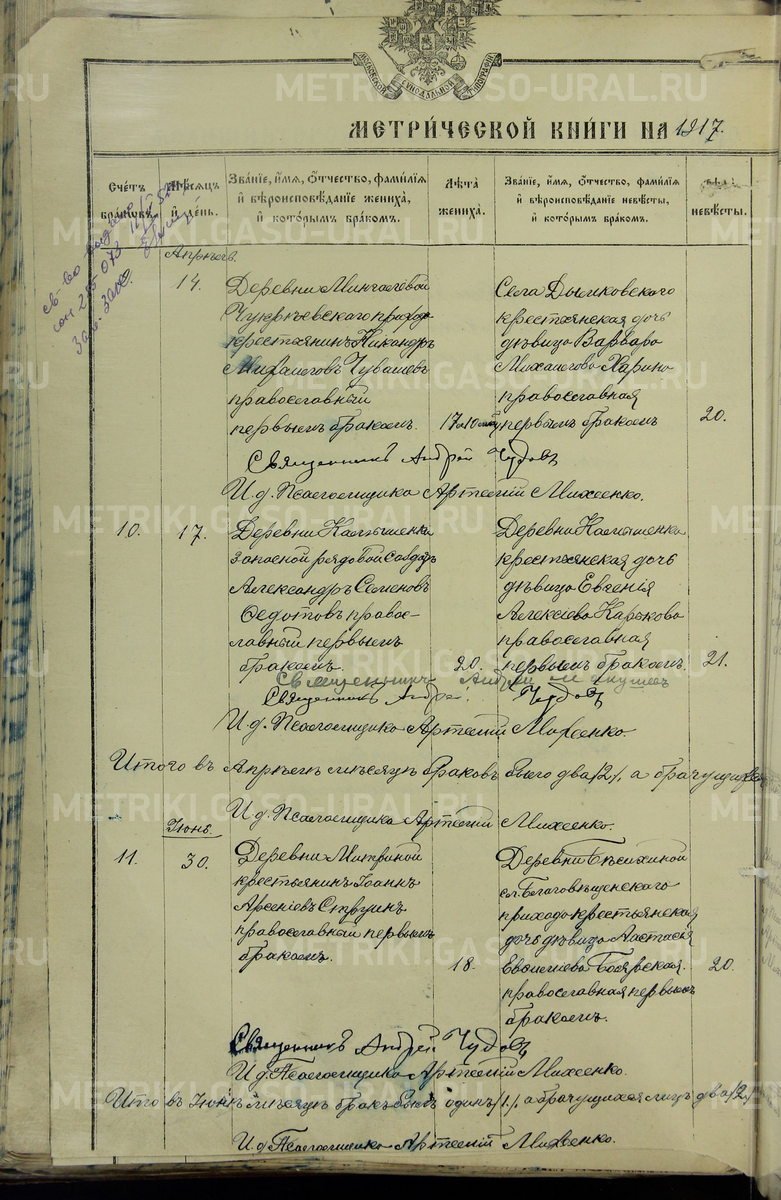 МОСКОВСКОЙ СѴНОДАЛЬНОЙ ТИПОГРАФІИ
METRIKI.GASO-URAL.RU
МЕТРИ́ЧЕСКОЙ КНИ́ГИ НА 1917.
Сче́тъ бра́ковъ.
Мѣ́сяцъ и҆ де́нь.
Зва́ніе, и҆́мя, ѻ҆́тчество, фами́лія
и҆ вѣроисповѣ́даніе жениха̀,
и҆ кото́рымъ бра́комъ.
Лѣ́та
жениха̀.
Зва́ніе, и҆́мя, ѻ҆́тчество, фами́лія
и҆ вѣроисповѣ́даніе невѣ́сты,
и҆ кото́рымъ бра́комъ.
невѣ́сты.
св-во выдано
Апрѣль.
14.
Деревни
прихода
крестьянинъ Никандръ
Михаиловъ Чувашевъ
православный
первымъ бракомъ.
17
Села Дымковскаго
крестьянская дочь
дѣвица Варвара
Михаилова Харина
православная
первымъ бракомъ
20.
Священникъ Андрей Чудовъ
И. д. Псаломщика Артемій Михеенко.
10.
17.
Деревни
запасной рядовой солдатъ
Александръ Семеновъ
Ѳедотовъ право-
славный первымъ
бракомъ.
20.
Деревни
крестьянская дочь
дѣвица Евгенія
Алексіева
православная
первымъ бракомъ.
21.
Священникъ Андрей
Священникъ Андрей Чудовъ
И. д. Псаломщика Артемій Михеенко
Итого въ Апрѣлѣ мѣсяцѣ браковъ было два /2/, а брачущихся
И. д. Псаломщика Артемій Михеенко.
Іюнь.
11.
30.
Деревни Митриной
крестьянинъ Іоаннъ
Арсеніевъ
православный первымъ
бракомъ.
18.
Деревни
Благовѣщенскаго
прихода крестьянская
дочь дѣвица Анастасія
Боярская.
православная первымъ
бракомъ.
20.
Священникъ Андрей Чудовъ
И. д. Псаломщика Артемій Михеенко.
Итого въ Іюнѣ мѣсяцѣ бракъ былъ одинъ /1/, а брачущихся лицъ два /2/
И. д. Псаломщика Артемій Михеенко.